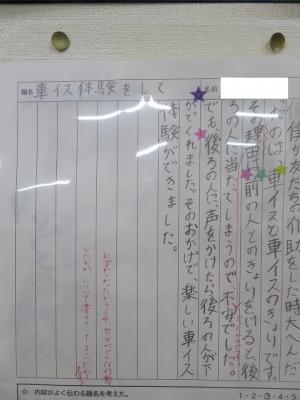 題名
車イス体験をして
名前
僕が友だちの介助をした時大へんだ
ったのは、車イスと車イスのきょりです。
その理由は前の人とのきょりをけると、後
ろの人に当たってしまうので不安でした。
でも、後ろの人に、声をかけたら後ろの人が下
がってくれました。そのおかげで、楽しい車イス
体験ができました。
☆ 内容がよく伝わる題名を考えた。
1・2・3・4・5